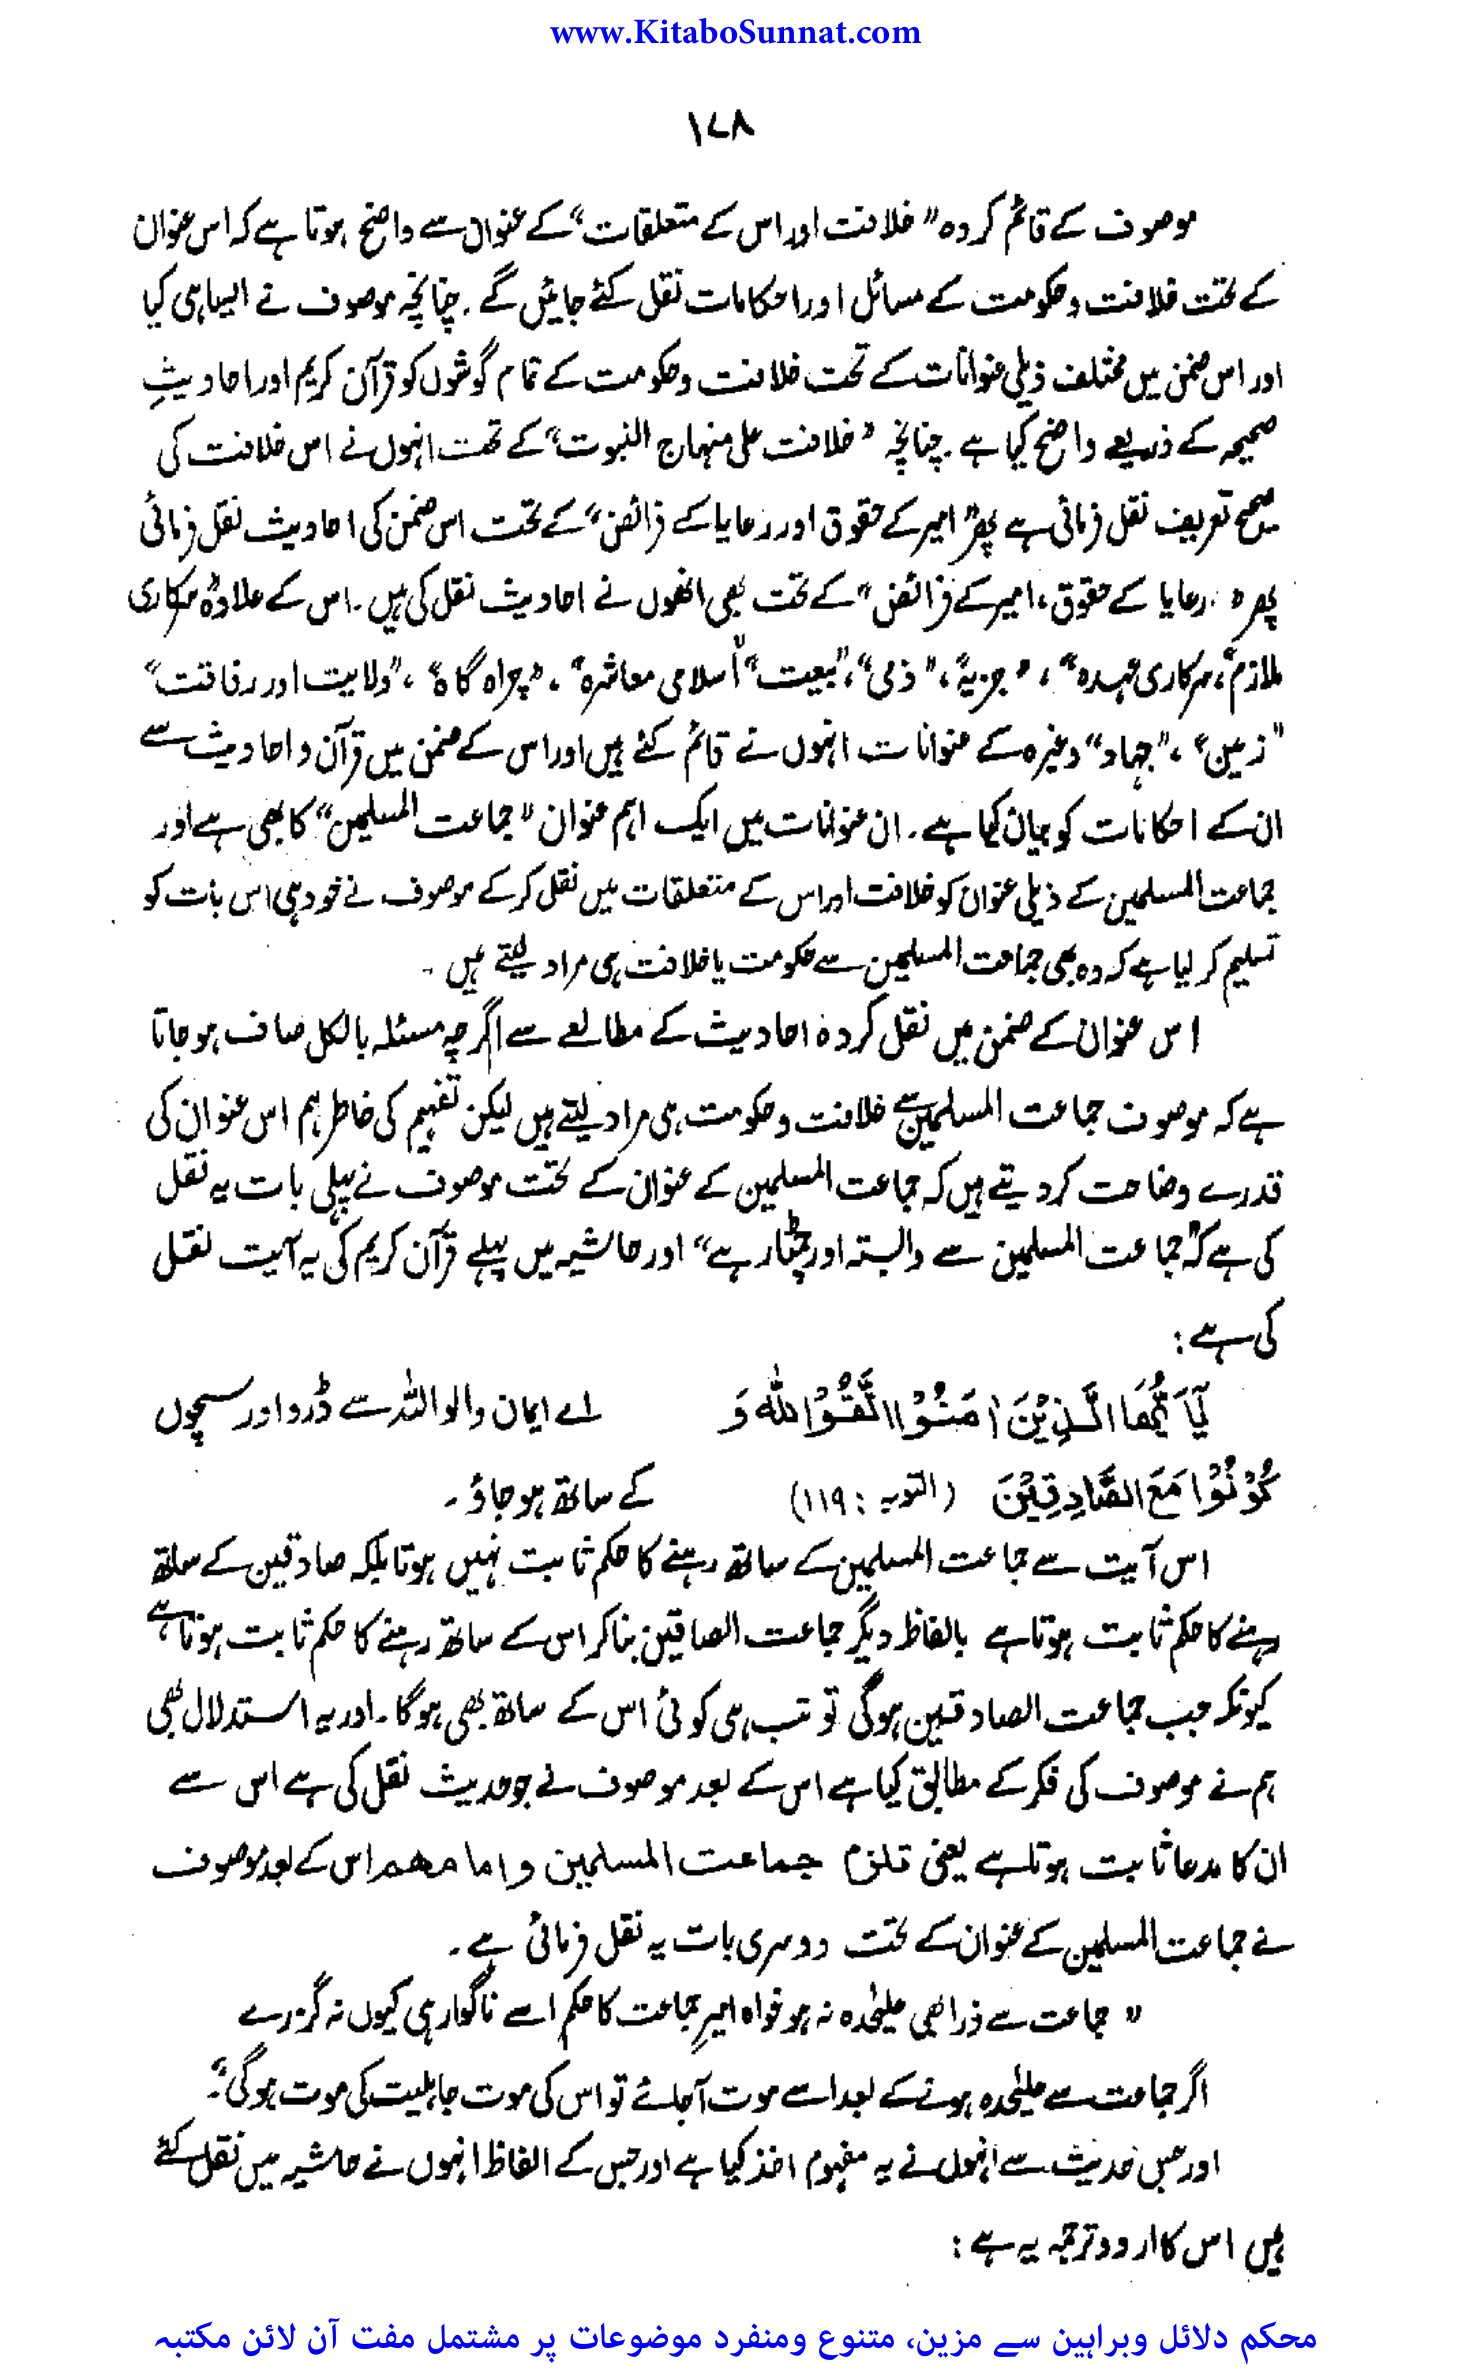 www.KitaboSunnat.com
۱۷۸
موصوف کے قائم کردہ "خلافت اور اس کے متعلقات" کے عنوان سے واضح ہوتا ہے کہ اس عنوان
کے تحت خلافت و حکومت کے مسائل اور احکامات نقل کئے جائیں گے۔ چنانچہ موصوف نے ایسا ہی کیا
اور اس ضمن میں مختلف ذیلی عنوانات کے تحت خلافت و حکومت کے تمام گوشوں کو قرآن کریم اور احادیثِ
صحیحہ کے ذریعے واضح کیا ہے۔ چنانچہ "خلافت علی منہاج النبوت" کے تحت انہوں نے اس خلافت کی
صحیح تعریف نقل فرمائی ہے پھر "امیر کے حقوق اور رعایا کے فرائض" کے تحت اس ضمن کی احادیث نقل فرمائی
پھر "رعایا کے حقوق، امیر کے فرائض" کے تحت بھی انھوں نے احادیث نقل کی ہیں۔ اس کے علاوہ "سرکاری
ملازم"، "سرکاری عہدہ"، "جزیہ"، "ذمی"، "بیعت" "اسلامی معاشرہ"، "چراہ گاہ"، "ولایت اور رفاقت"
"زمین"، "جہاد" وغیرہ کے عنوانات انہوں نے قائم کئے ہیں اور اس کے ضمن میں قرآن و احادیث سے
ان کے احکامات کو بیان کیا ہے۔ ان عنوانات میں ایک اہم عنوان "جماعت المسلمین" کا بھی ہے اور
جماعت المسلمین کے ذیلی عنوان کو خلافت اور اس کے متعلقات میں نقل کر کے موصوف نے خود ہی اس بات کو
تسلیم کر لیا ہے کہ وہ بھی جماعت المسلمین سے حکومت یا خلافت ہی مراد لیتے ہیں۔
اس عنوان کے ضمن میں نقل کردہ احادیث کے مطالعے سے اگرچہ مسئلہ بالکل صاف ہو جاتا
ہے کہ موصوف جماعت المسلمین سے خلافت و حکومت ہی مراد لیتے ہیں لیکن تفہیم کی خاطر ہم اس عنوان کی
قدرے وضاحت کر دیتے ہیں کہ جماعت المسلمین کے عنوان کے تحت موصوف نے پہلی بات یہ نقل
کی ہے کہ "جماعت المسلمین سے وابستہ اور چمٹا رہے" اور حاشیہ میں پہلے قرآن کریم کی یہ آیت نقل
کی ہے:
یٰۤاَیُّهَا الَّذِیْنَ اٰمَنُوْا اتَّقُوْا اللّٰهَ وَ اے ایمان والو اللہ سے ڈرو اور سچوں
كُوْنُوْا مَعَ الصَّادِقِیْنَ (التوبہ: ۱۱۹) کے ساتھ ہو جاؤ۔
اس آیت سے جماعت المسلمین کے ساتھ رہنے کا حکم ثابت نہیں ہوتا بلکہ صادقین کے ساتھ
رہنے کا حکم ثابت ہوتا ہے بالفاظ دیگر جماعت الصاقین بنا کر اس کے ساتھ رہنے کا حکم ثابت ہوتا ہے
کیونکہ جب جماعت الصادقین ہو گی تو تب ہی کوئی اس کے ساتھ بھی ہو گا۔ اور یہ استدلال بھی
ہم نے موصوف کی فکر کے مطابق کیا ہے اس کے بعد موصوف نے جو حدیث نقل کی ہے اس سے
ان کا مدعا ثابت ہوتا ہے یعنی تلزم جماعت المسلمین وامامھم اس کے بعد موصوف
نے جماعت المسلمین کے عنوان کے تحت دوسری بات یہ نقل فرمائی ہے۔
"جماعت سے ذرا بھی علیٰحدہ نہ ہو خواہ امیرِ جماعت کا حکم اسے ناگوار ہی کیوں نہ گزرے
اگر جماعت سے علیٰحدہ ہونے کے بعد اسے موت آجائے تو اس کی موت جاہلیت کی موت ہو گی"۔
اور جس حدیث سے انہوں نے یہ مفہوم اخذ کیا ہے اور جس کے الفاظ انہوں نے حاشیہ میں نقل کئے
ہیں اس کا اردو ترجمہ یہ ہے:
محکم دلائل وبراہین سے مزین، متنوع ومنفرد موضوعات پر مشتمل مفت آن لائن مکتبہ